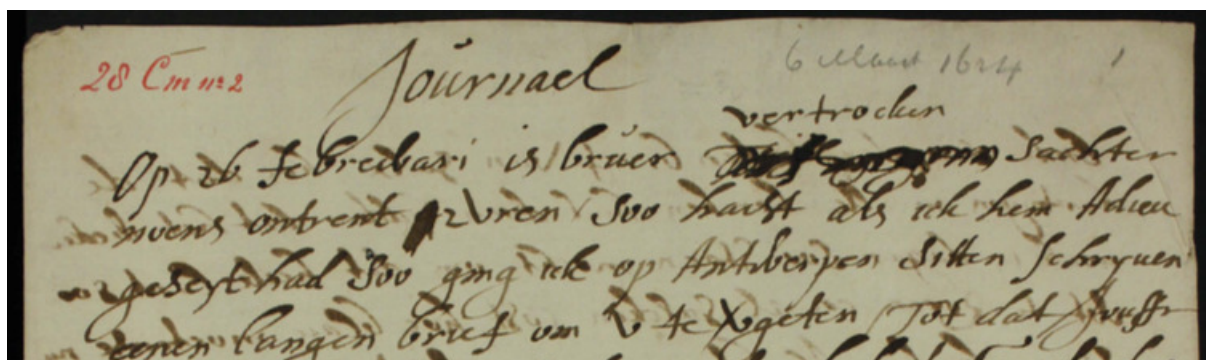 28 Cm nr 2
Journael
6 Maart 1624
1
vertrocken
Op 26 Febrewari is bruer Sachter
noens ontrent 2 vren Soo haest als ick hem Adieu
geseyt had Soo ging ick op Antwerpen Sitten Schryuen
eenen langen brief om v te Tot dat Jouffr